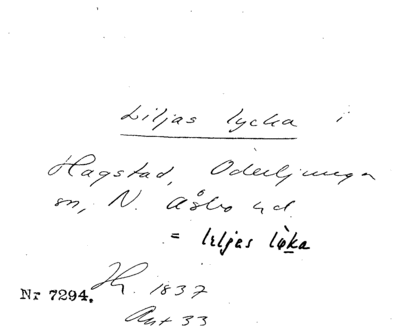 Liljas lycka i
Hagstad, Öderljunga
sn, N. Åsbo hd.
= liljas lyka
Nr 7294. Hh. 1837
Akt 33